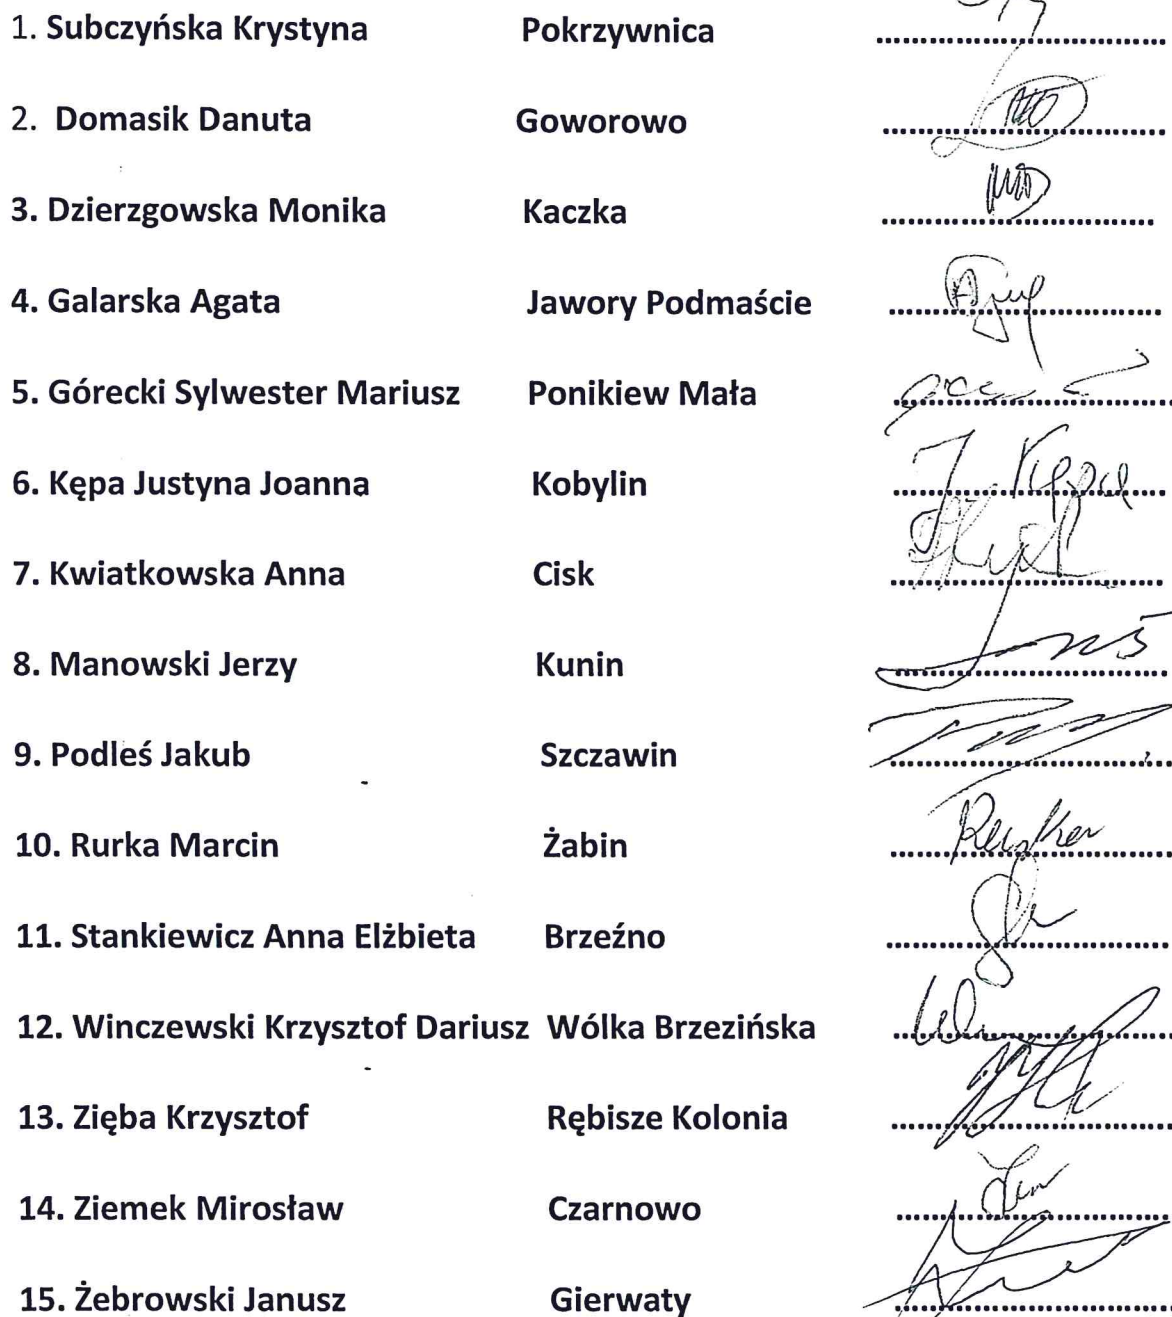 1. Subczyńska Krystyna Pokrzywnica ........................
2. Domasik Danuta Goworowo ........................
3. Dzierzgowska Monika Kaczka ........................
4. Galarska Agata Jawory Podmaście ........................
5. Górecki Sylwester Mariusz Ponikiew Mała ........................
6. Kępa Justyna Joanna Kobylin ........................
7. Kwiatkowska Anna Cisk ........................
8. Manowski Jerzy Kunin ........................
9. Podleś Jakub Szczawin ........................
10. Rurka Marcin Żabin ........................
11. Stankiewicz Anna Elżbieta Brzeźno ........................
12. Winczewski Krzysztof Dariusz Wólka Brzezińska ........................
13. Zięba Krzysztof Rębisze Kolonia ........................
14. Ziemek Mirosław Czarnowo ........................
15. Żebrowski Janusz Gierwaty ........................